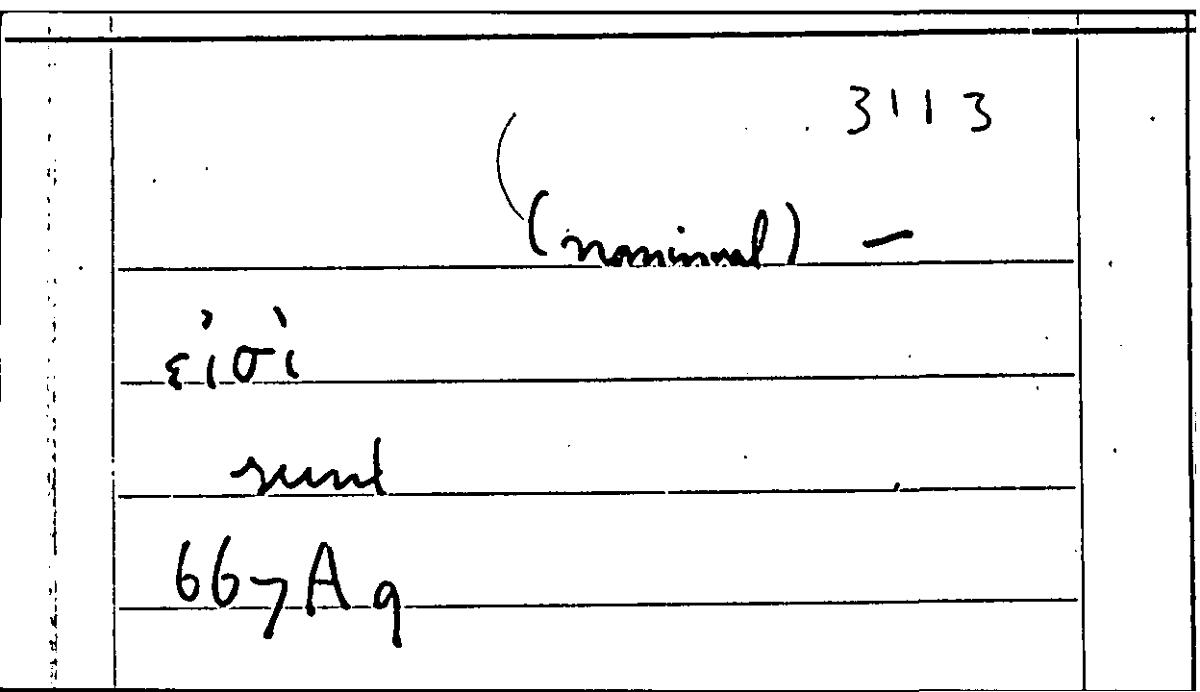 3113
(nominal) –
εἰσὶ
sunt
667 Aq